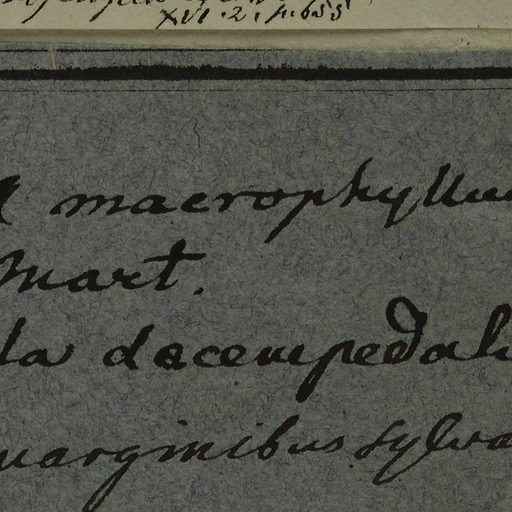 XVI. 2. p. 655
macrophyllum
Mart.
la decempedali
marginibus sylva